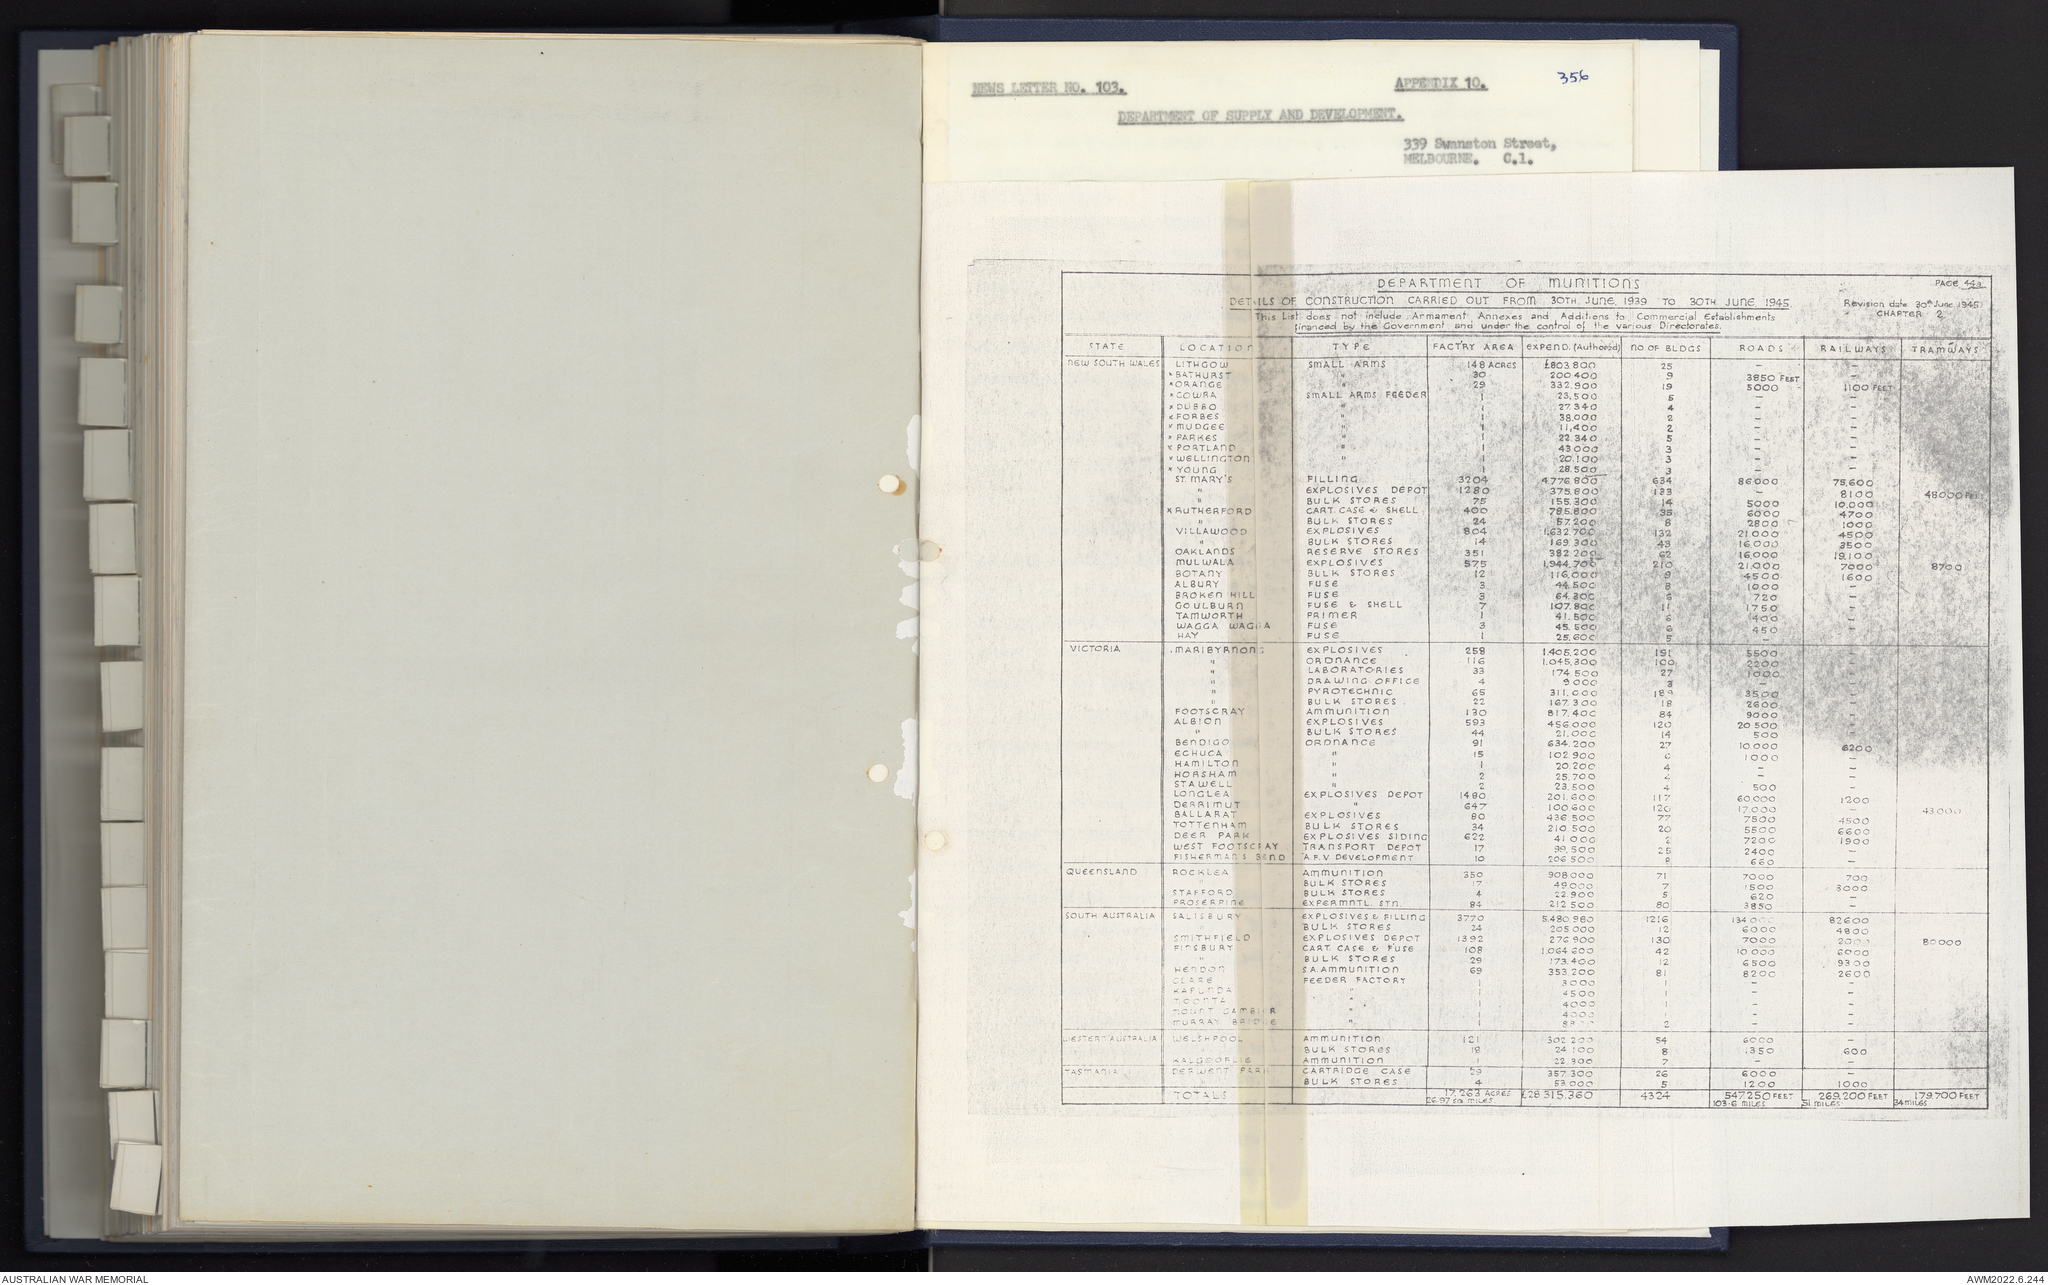 NEWS LETTER NO. 103. APPENDIX 10. 356
DEPARTMENT OF SUPPLY AND DEVELOPMENT.
339 Swanston Street,
MELBOURNE. C.1.
DEPARTMENT OF MUNITIONS PAGE 44a
DETAILS OF CONSTRUCTION CARRIED OUT FROM 30TH JUNE 1939 TO 30TH JUNE 1945. Revision date 30th June 1945
This List does not include Armament Annexes and Additions to Commercial Establishments CHAPTER 2
financed by the Government and under the control of the various Directorates.
STATE LOCATION TYPE FACT'RY AREA EXPEND. (Authorsd) NO OF BLDGS ROADS RAILWAYS TRAMWAYS
NEW SOUTH WALES LITHGOW SMALL ARMS 148 ACRES £803.800 25 – –
* BATHURST " 30 200.400 9 3850 FEET –
* ORANGE " 29 332.900 19 5000 1100 FEET
* COWRA SMALL ARMS FEEDER 1 23.500 5 – –
* DUBBO " 1 27.340 4 – –
* FORBES " 1 38.000 2 – –
* MUDGEE " 1 11,400 2 – –
* PARKES " 1 22.340 5 – –
* PORTLAND " 1 43000 3 – –
* WELLINGTON " 1 20.100 3 – –
* YOUNG 1 28.500 3 – –
ST. MARY'S FILLING 3204 4.776.800 634 86000 75,600
" EXPLOSIVES DEPOT 1280 375.800 133 – 8100 48000 FEET
" BULK STORES 75 155.300 14 5000 10,000
* RUTHERFORD CART. CASE & SHELL 400 785.800 35 6000 4700
" BULK STORES 24 57.200 8 2800 1000
VILLAWOOD EXPLOSIVES 804 1.632.700 132 21000 4500
" BULK STORES 14 169.300 43 16,000 3500
OAKLANDS RESERVE STORES 351 382.200 62 16,000 19,100
MULWALA EXPLOSIVES 575 1,944.700 210 21.000 7000 8700
BOTANY BULK STORES 12 116.000 9 4500 1600
ALBURY FUSE 3 44.500 8 1000 –
BROKEN HILL FUSE 3 64.300 6 720 –
GOULBURN FUSE & SHELL 7 107.800 11 1750 –
TAMWORTH PRIMER 1 41.500 6 400 –
WAGGA WAGGA FUSE 3 45.500 6 450 –
HAY FUSE 1 25.600 5 –
VICTORIA MARIBYRNONG EXPLOSIVES 258 1.405.200 191 5500
" ORDNANCE 116 1.045.300 100 2200
" LABORATORIES 33 174.500 27 1000
" DRAWING OFFICE 4 9000 3 –
" PYROTECHNIC 65 311.000 189 3500
" BULK STORES 22 167.300 18 2600
FOOTSCRAY AMMUNITION 130 817.400 84 9000
ALBION EXPLOSIVES 593 456.000 120 20.500
" BULK STORES 44 21.000 14 500
BENDIGO ORDNANCE 91 634.200 27 10.000 6200
ECHUCA " 15 102.900 6 1000 –
HAMILTON " 1 20.200 4 – –
HORSHAM " 2 25.700 – –
STAWELL " 2 23.500 4 500 –
LONGLEA EXPLOSIVES DEPOT 1480 201.600 117 60,000 1200
DERRIMUT " 647 100.600 120 17.000 – 43000
BALLARAT EXPLOSIVES 80 436.500 77 7500 4500
TOTTENHAM BULK STORES 34 210.500 20 5500 6600
DEER PARK EXPLOSIVES SIDING 622 41000 2 7200 1900
WEST FOOTSCRAY TRANSPORT DEPOT 17 99,500 25 2400 –
FISHERMANS BEND A.F.V. DEVELOPMENT 10 206.500 660 –
QUEENSLAND ROCKLEA AMMUNITION 350 908000 71 7000 700
" BULK STORES 17 49.000 7 1500 3000
STAFFORD BULK STORES 4 22.900 5 620 –
PROSERPINE EXPERMNTL. STN. 84 212.500 80 3850 –
SOUTH AUSTRALIA SALISBURY EXPLOSIVES & FILLING 3770 5.480.980 1216 134000 82600
" BULK STORES 24 205.000 12 6000 4800
SMITHFIELD EXPLOSIVES DEPOT 1392 276.900 130 7000 2000 80000
FINSBURY CART. CASE & FUSE 108 1.064.600 42 10.000 6000
" BULK STORES 29 173.400 12 6500 9300
HENDON S.A. AMMUNITION 69 353.200 81 8200 2600
CLARE FEEDER FACTORY 1 3000 1 – –
KAPUNDA " 1 4500 1 – –
MOONTA " 1 4000 1 – –
MOUNT GAMBIER " 1 4000 1 – –
MURRAY BRIDGE " 1 2 – –
WESTERN AUSTRALIA WELSHPOOL AMMUNITION 121 302.200 54 6000 –
BULK STORES 18 24.100 8 1350 600
KALGOORLIE AMMUNITION 1 22.300 7 – –
TASMANIA DERWENT PARK CARTRIDGE CASE 29 357.300 26 6000 –
" BULK STORES 4 53.000 5 1200 1000
TOTALS 17.263 ACRES £28.315.360 4324 547.250 FEET 269,200 FEET 179.700 FEET
26.97 SQ MILES 103.6 MILES 51 MILES 34 MILES
AUSTRALIAN WAR MEMORIAL AWM2022.6.244